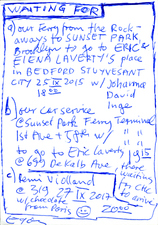 WAITING FOR
a) our Ferry from the Rock-
aways to SUNSET PARK,
Brooklyn to go to ERIC &
ELENA LAVERTY's place
in BEDFORD STUYVESANT
CITY 25 IX 2015 w/ Johanna
18 David
b) our car service Inge
@ Sunset Park Ferry Terminal
1st Ave + 58th w/
to go to Eric Laverty 1915
@ 689 DeKalb Ave there
waiting
for
to arrive
c) Remi Vidland
@ 319 27 IX 2017
w/ chocolate
from Paris 2000